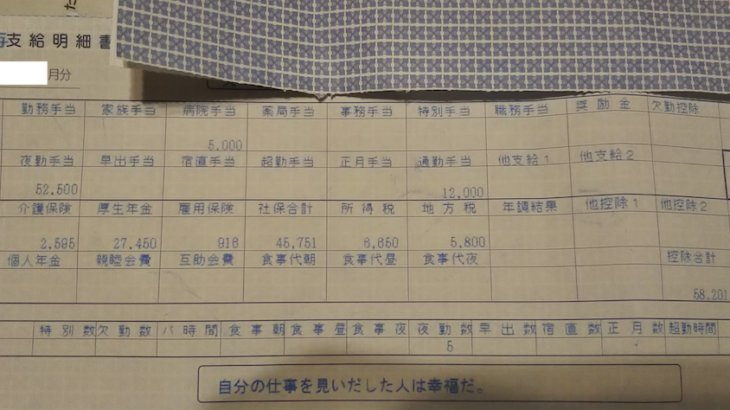 支給明細書
月分
勤務手当 家族手当 病院手当 薬局手当 事務手当 特別手当 職務手当 奨励金 欠勤控除
5,000
夜勤手当 早出手当 宿直手当 超勤手当 正月手当 通勤手当 他支給1 他支給2
52,500 12,000
介護保険 厚生年金 雇用保険 社保合計 所得税 地方税 年調結果 他控除1 他控除2
2,595 27,450 916 45,751 6,650 5,800
個人年金 親睦会費 互助会費 食事代朝 食事代昼 食事代夜 控除合計
58,201
特別数 欠勤数 パ時間 食事朝 食事昼 食事夜 夜勤数 早出数 宿直数 正月数 超勤時間
5
自分の仕事を見いだした人は幸福だ。